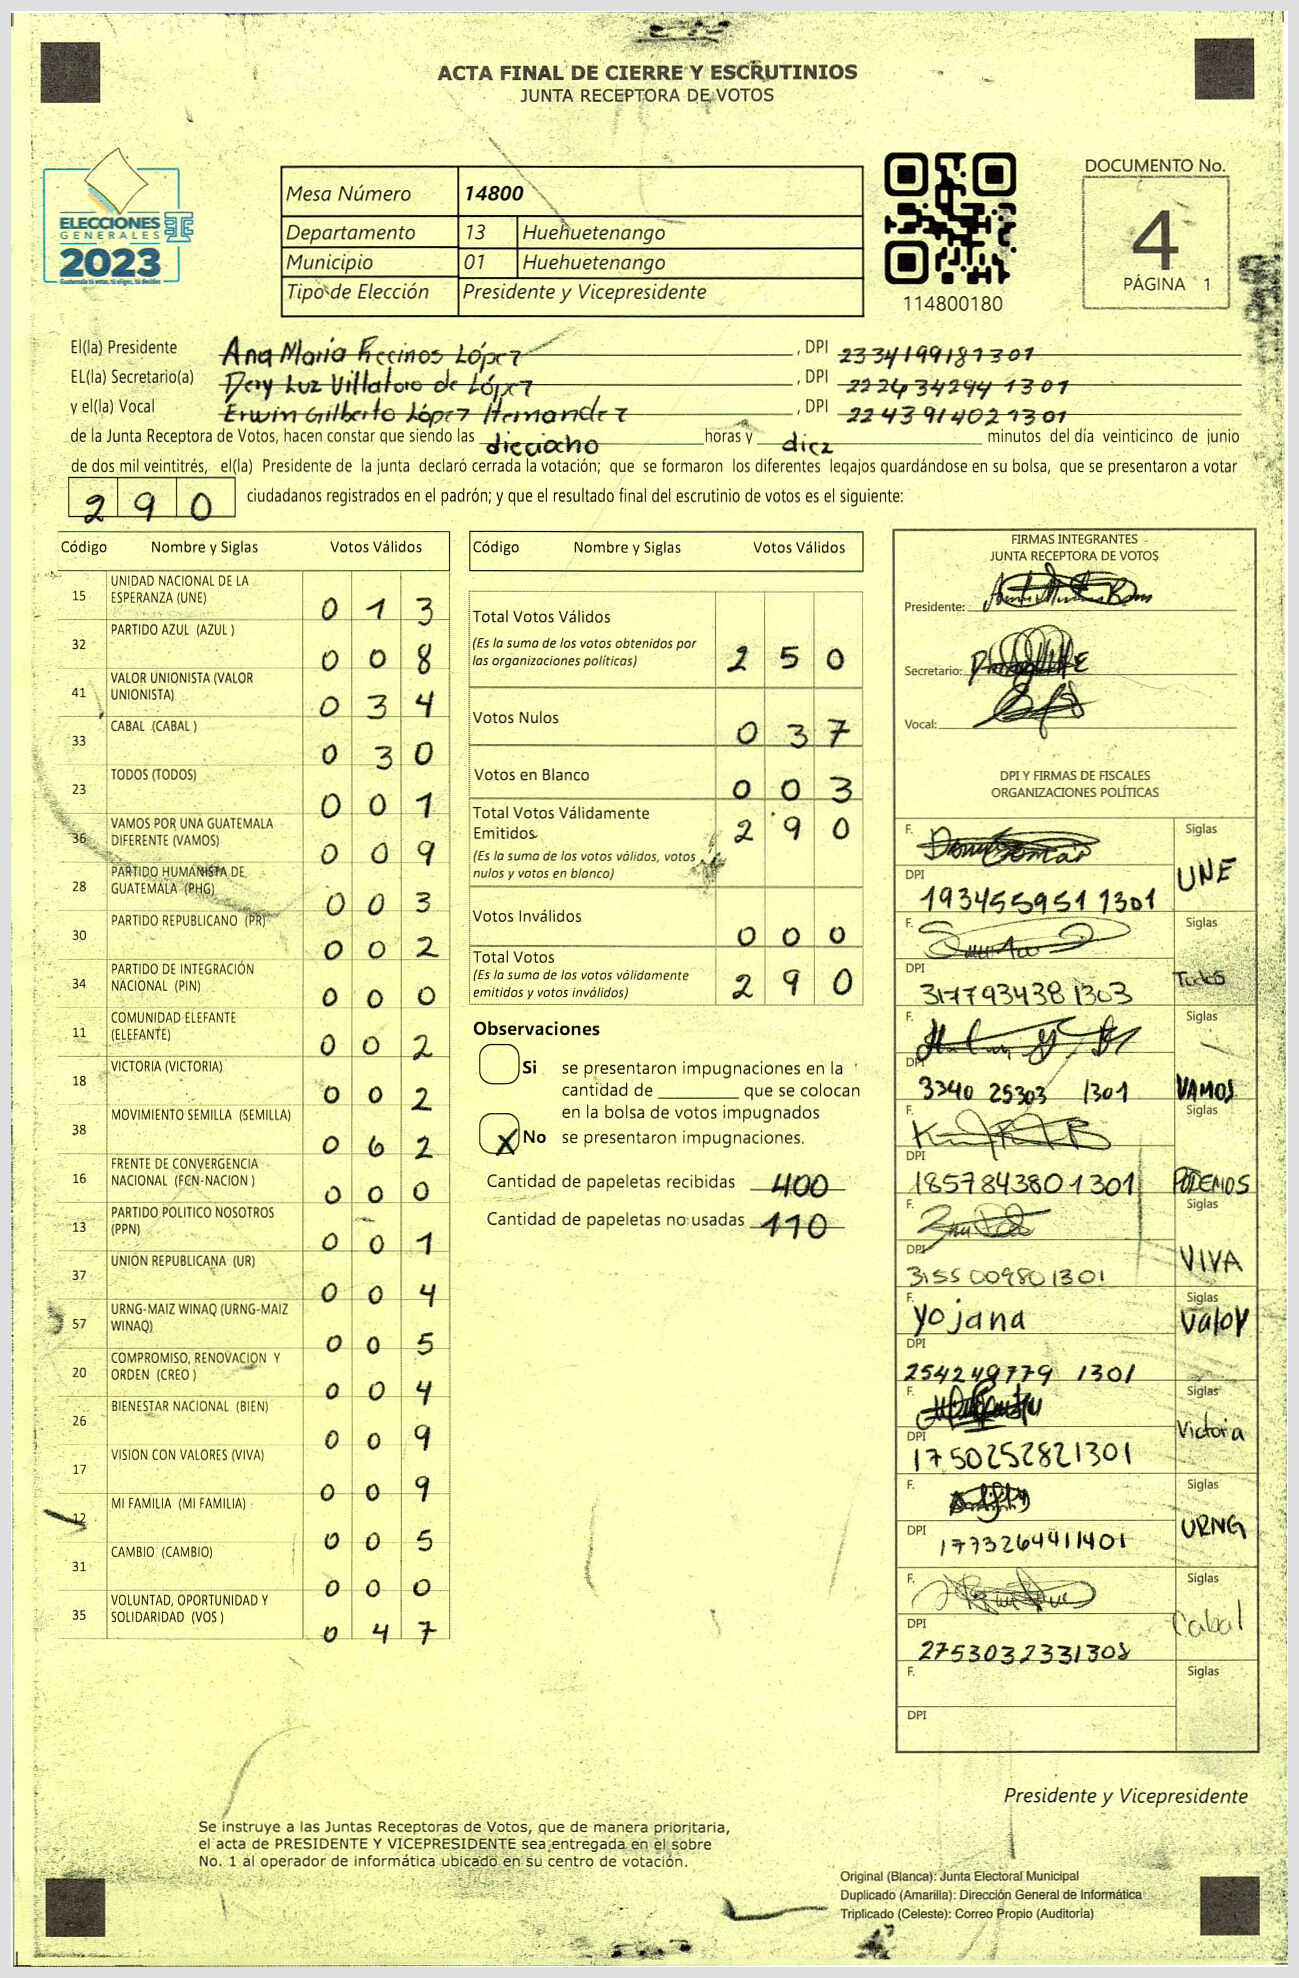 ACTA FINAL DE CIERRE Y ESCRUTINIOS
JUNTA RECEPTORA DE VOTOS
ELECCIONES
GENERALES
2023
Mesa Número 14800
Departamento 13 Huehuetenango
Municipio 01 Huehuetenango
Tipo de Elección Presidente y Vicepresidente
114800180
DOCUMENTO No.
4
PÁGINA 1
El(la) Presidente Ana María Recinos López, DPI 2334199181301
EL(la) Secretario(a) Dery Luz Villatoro de López, DPI 2226342941301
y el(la) Vocal Erwin Gilberto López Hernandez, DPI 2243914021301
de la Junta Receptora de Votos, hacen constar que siendo las dieciocho horas y diez minutos del día veinticinco de junio
de dos mil veintitrés, el(la) Presidente de la junta declaró cerrada la votación; que se formaron los diferentes legajos guardándose en su bolsa, que se presentaron a votar
290 ciudadanos registrados en el padrón; y que el resultado final del escrutinio de votos es el siguiente:
Código Nombre y Siglas Votos Válidos
15 UNIDAD NACIONAL DE LA ESPERANZA (UNE) 013
32 PARTIDO AZUL (AZUL ) 008
41 VALOR UNIONISTA (VALOR UNIONISTA) 034
33 CABAL (CABAL ) 030
23 TODOS (TODOS) 001
36 VAMOS POR UNA GUATEMALA DIFERENTE (VAMOS) 009
28 PARTIDO HUMANISTA DE GUATEMALA (PHG) 003
30 PARTIDO REPUBLICANO (PR) 002
34 PARTIDO DE INTEGRACIÓN NACIONAL (PIN) 000
11 COMUNIDAD ELEFANTE (ELEFANTE) 002
18 VICTORIA (VICTORIA) 002
38 MOVIMIENTO SEMILLA (SEMILLA) 062
16 FRENTE DE CONVERGENCIA NACIONAL (FCN-NACION ) 000
13 PARTIDO POLITICO NOSOTROS (PPN) 001
37 UNION REPUBLICANA (UR) 004
57 URNG-MAIZ WINAQ (URNG-MAIZ WINAQ) 005
20 COMPROMISO, RENOVACION Y ORDEN (CREO ) 004
26 BIENESTAR NACIONAL (BIEN) 009
17 VISION CON VALORES (VIVA) 009
12 MI FAMILIA (MI FAMILIA) 005
31 CAMBIO (CAMBIO) 000
35 VOLUNTAD, OPORTUNIDAD Y SOLIDARIDAD (VOS ) 047
Código Nombre y Siglas Votos Válidos
Total Votos Válidos 250
(Es la suma de los votos obtenidos por
las organizaciones políticas)
Votos Nulos 037
Votos en Blanco 003
Total Votos Válidamente
Emitidos 290
(Es la suma de los votos válidos, votos
nulos y votos en blanco)
Votos Inválidos 000
Total Votos 290
(Es la suma de los votos válidamente
emitidos y votos inválidos)
Observaciones
Si se presentaron impugnaciones en la
cantidad de ________ que se colocan
en la bolsa de votos impugnados
X No se presentaron impugnaciones.
Cantidad de papeletas recibidas 400
Cantidad de papeletas no usadas 110
FIRMAS INTEGRANTES
JUNTA RECEPTORA DE VOTOS
Presidente:
Secretario:
Vocal:
DPI Y FIRMAS DE FISCALES
ORGANIZACIONES POLÍTICAS
F. Siglas
DPI 1934559511301 UNE
F. Siglas
DPI 3177934381303 Todos
F. Siglas
DPI 3340 25303 1301 VAMOS
F. Siglas
DPI 1857843801301 PODEMOS
F. Siglas
DPI 3155009801301 VIVA
F. Yojana Siglas
DPI 254249779 1301 Valor
F. Siglas
DPI 1750252821301 Victoria
F. Siglas
DPI 1773264411401 URNG
F. Siglas
DPI 2753032331308 Cabal
F. Siglas
DPI
Presidente y Vicepresidente
Se instruye a las Juntas Receptoras de Votos, que de manera prioritaria,
el acta de PRESIDENTE Y VICEPRESIDENTE sea entregada en el sobre
No. 1 al operador de informática ubicado en su centro de votación.
Original (Blanca): Junta Electoral Municipal
Duplicado (Amarilla): Dirección General de Informática
Triplicado (Celeste): Correo Propio (Auditoria)